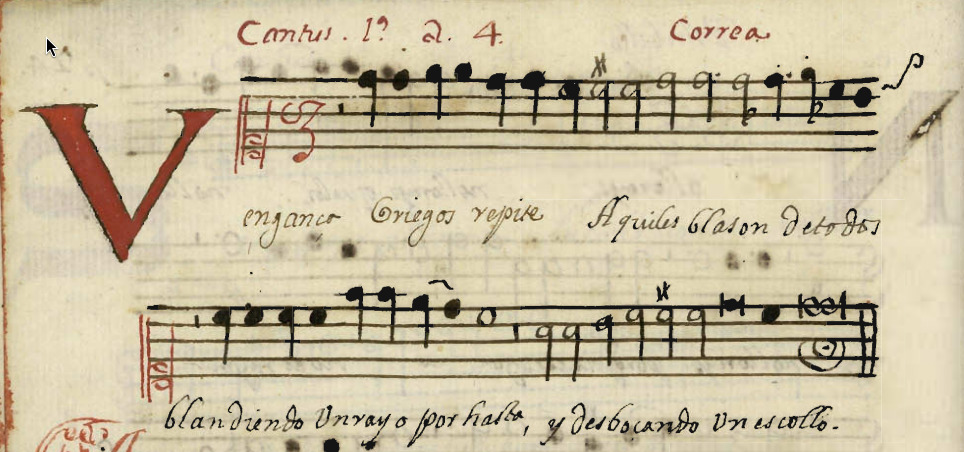 Cantus. 1º a. 4. Correa
Venganca Griegos repite Aquiles blason detodos
blandiendo Unrayo por hasta, y desbocando Un escollo.